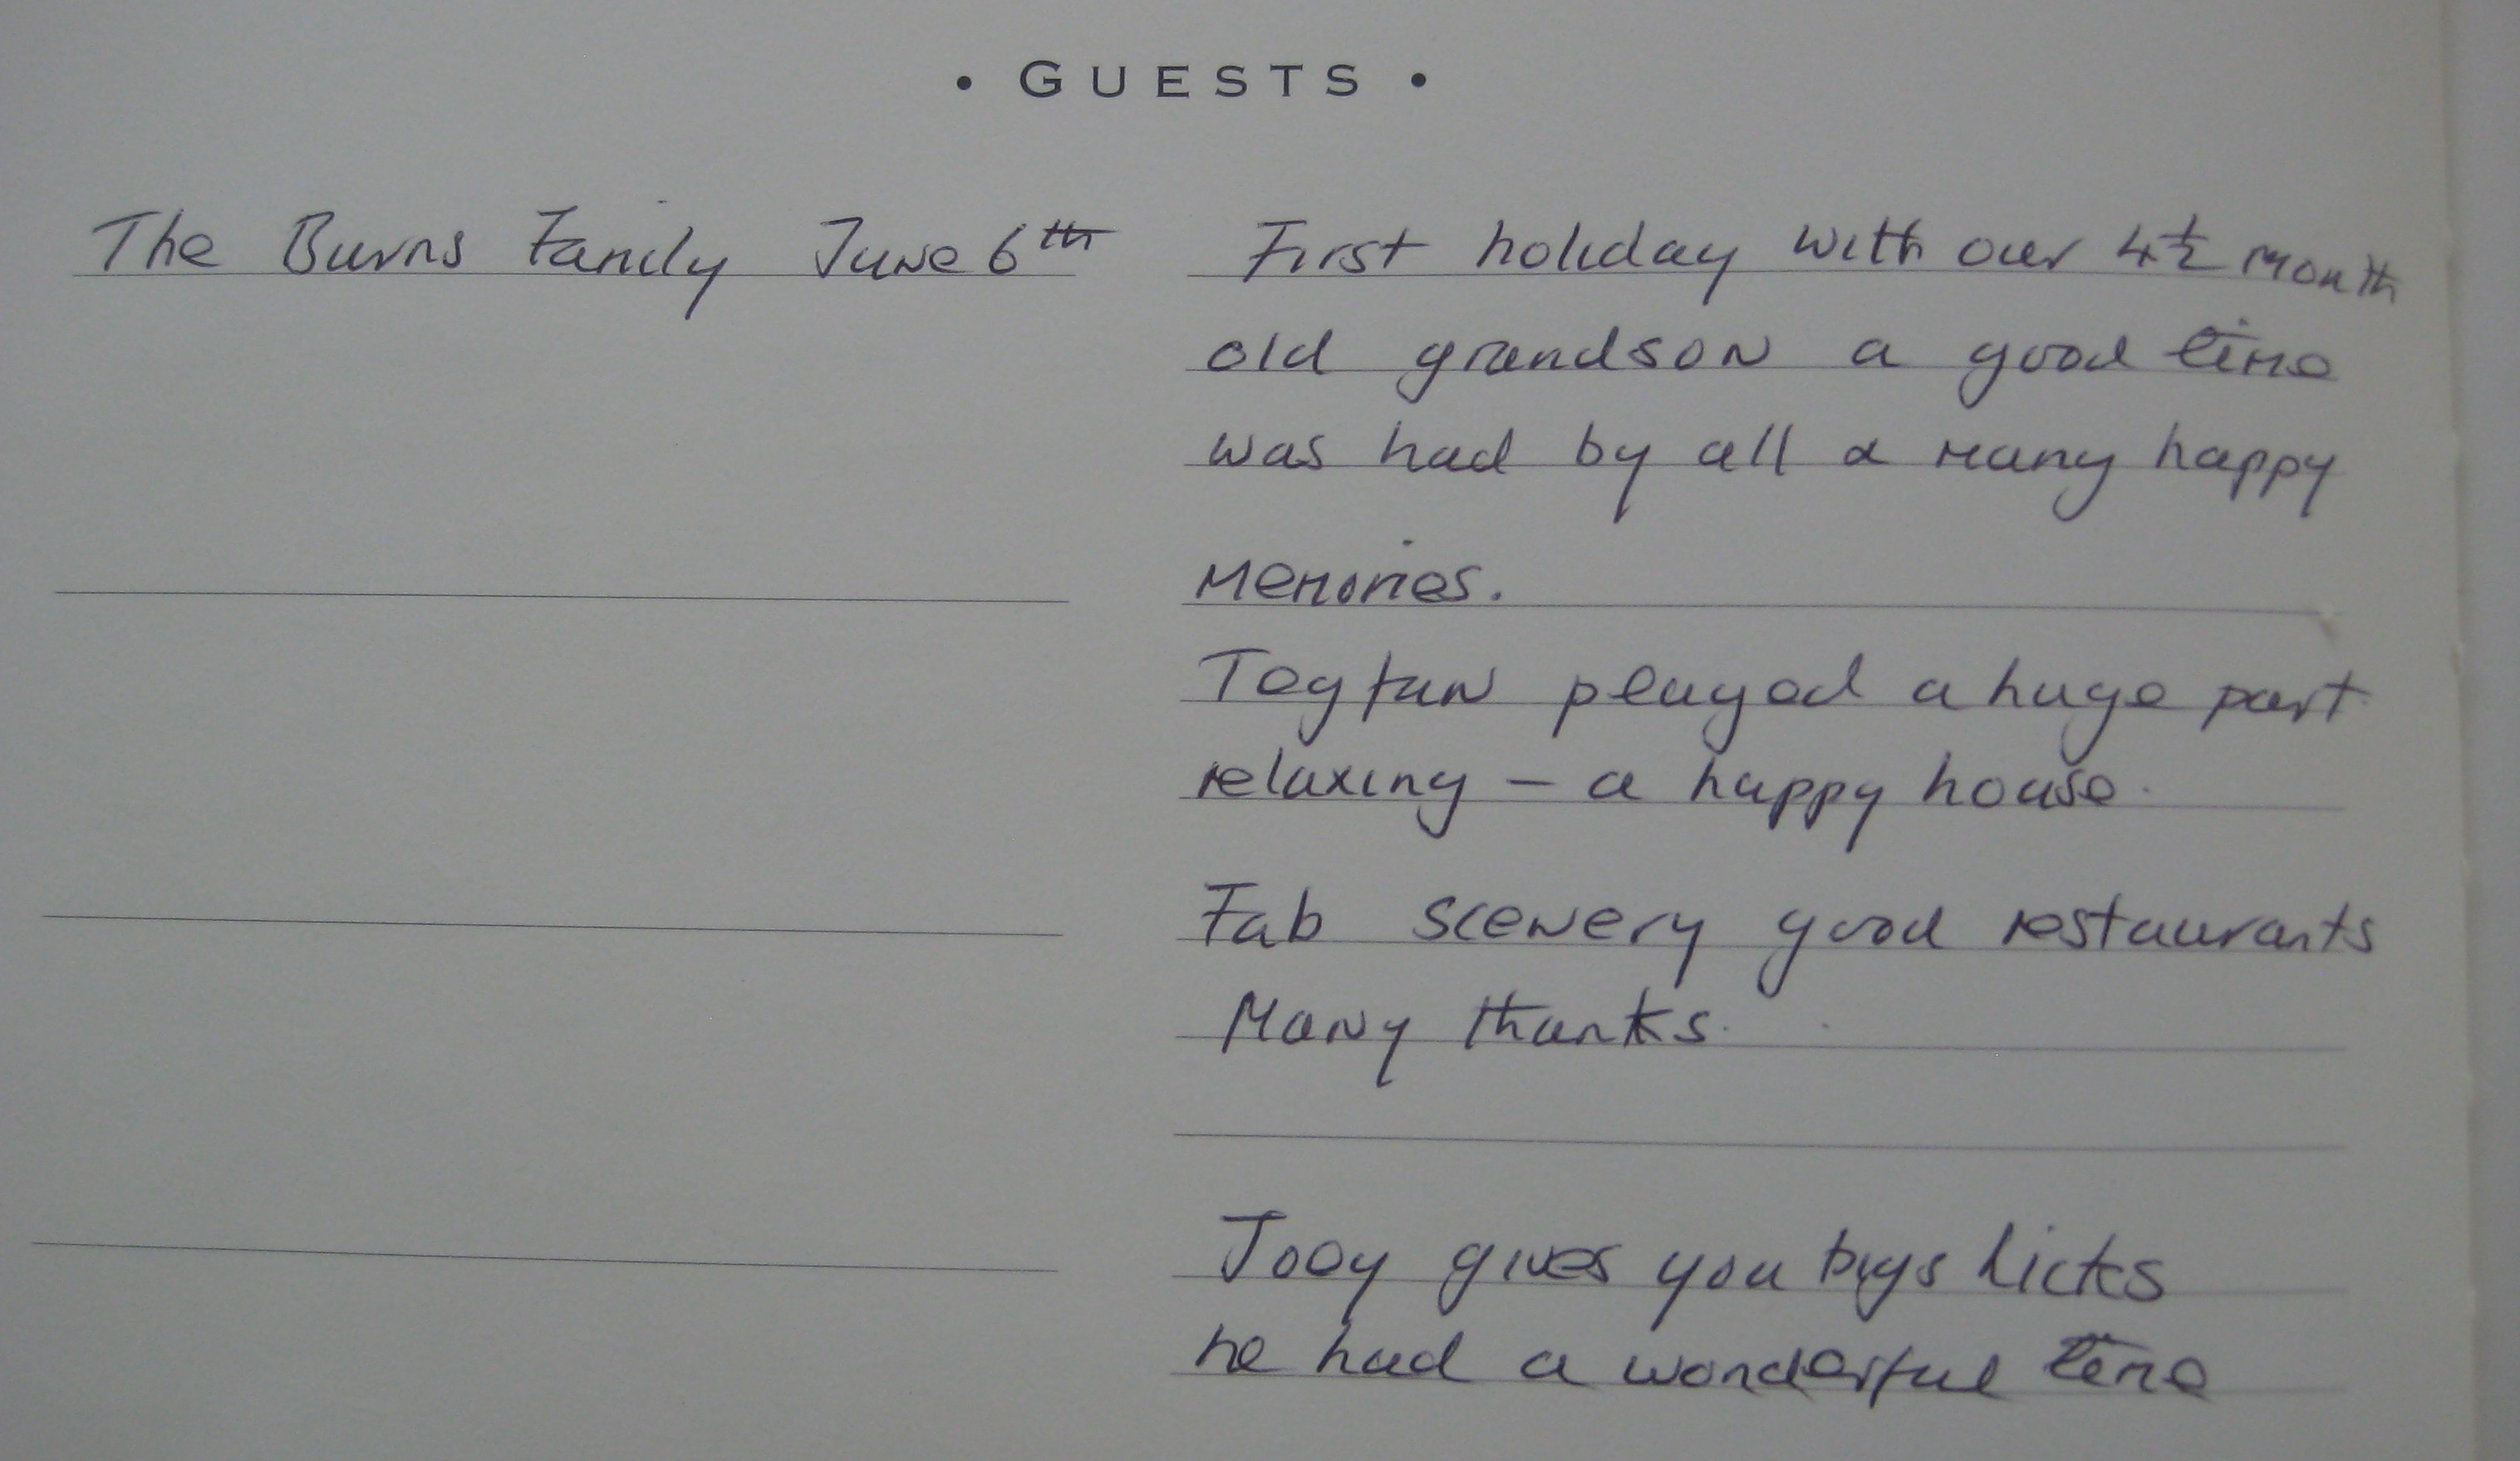 • GUESTS •
The Burns Family June 6th
First holiday with our 4½ month
old grandson a good time
was had by all & many happy
memories.
Tegfan played a huge part
relaxing – a happy house.
Fab scenery good restaurants
Many thanks.
Joey gives you bigs licks
he had a wonderful time